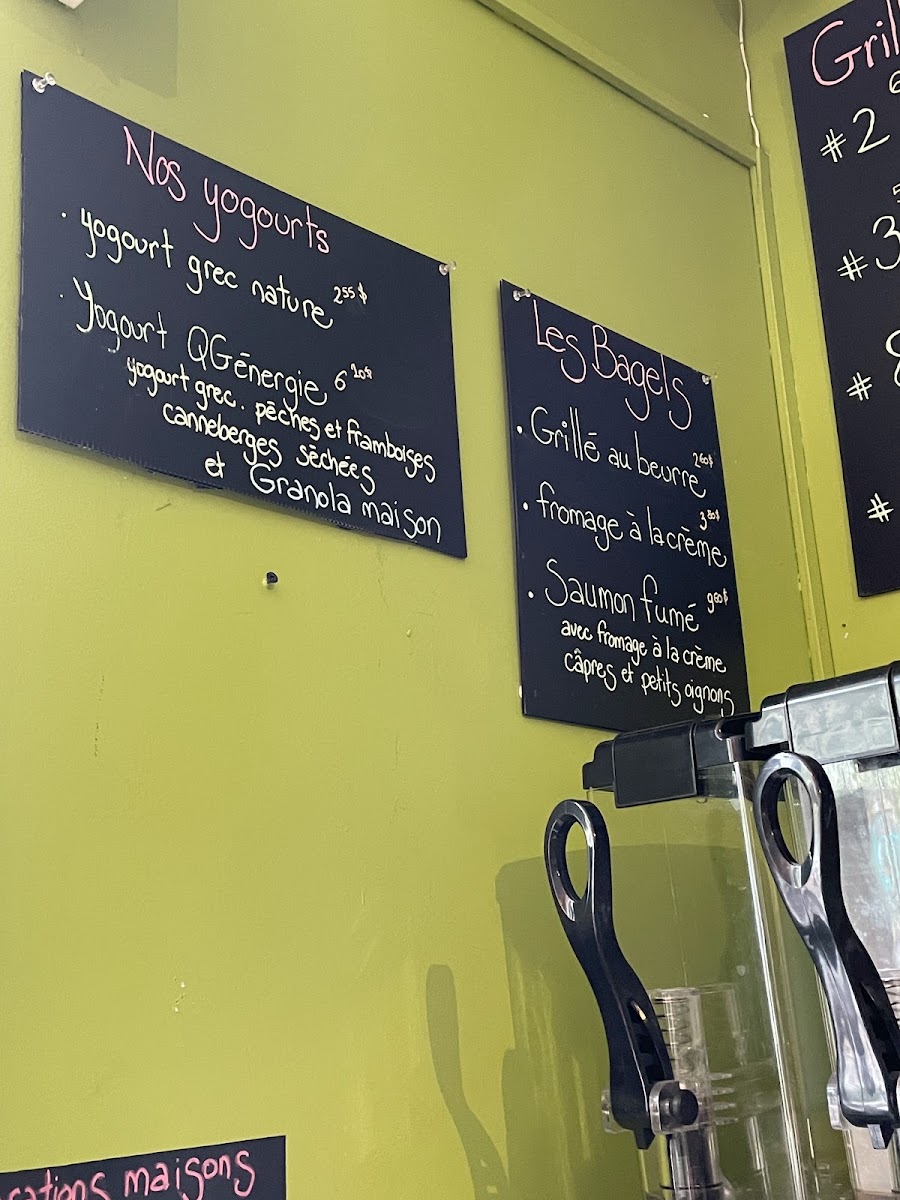 Nos yogourts
· yogourt grec nature 2 55 $
· Yogourt QGénergie 6 20$
yogourt grec. pêches et framboises
canneberges séchées
et Granola maison
Les Bagels
· Grillé au beurre 2 60$
· fromage à la crème 3 80$
· Saumon fumé 9 60$
avec fromage à la crème
câpres et petits oignons
#2
#3
#
#
maisons